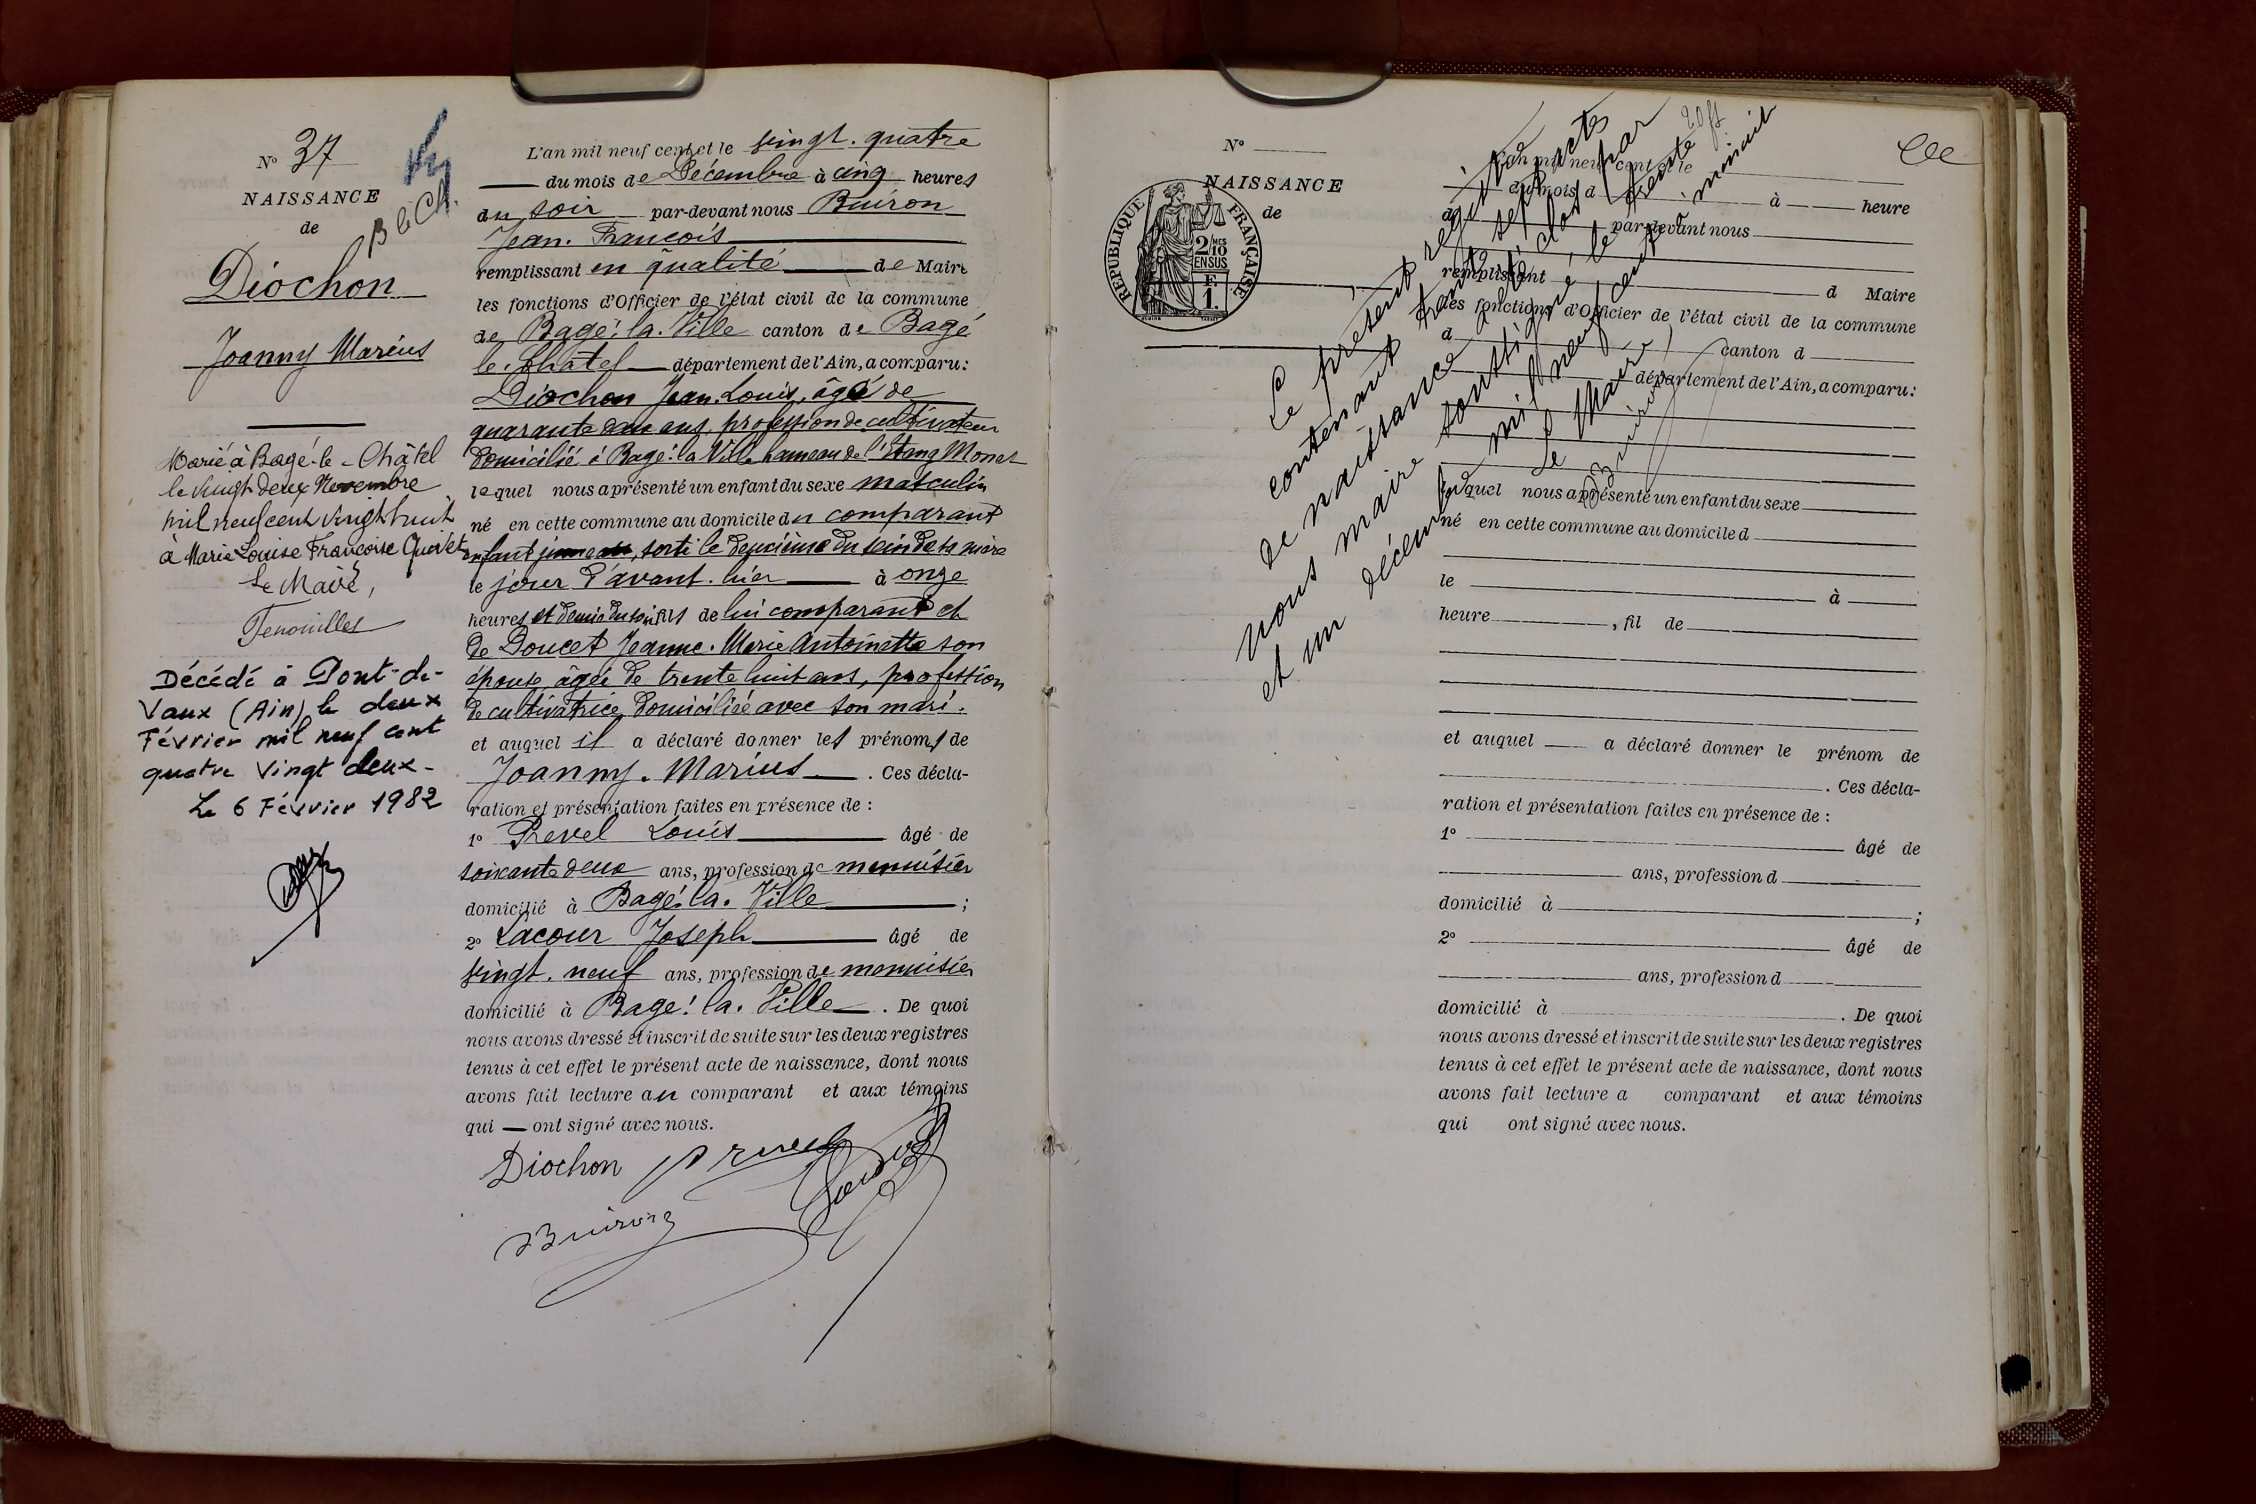 N° 37
NAISSANCE
de
Diochon
Joanny Marius
Marié à Bagé-le-Châtel
le vingt deux Novembre
mil neuf cent vingt huit
à Marie Louise Françoise
Le Maire,
Fenouilles
Décédé à Pont-de-
Vaux (Ain) le deux
Février mil neuf cent
quatre vingt deux-
Le 6 Février 1982
L'an mil neuf cent et le vingt. quatre
du mois de Décembre à cinq heures
du soir par-devant nous Buiron
Jean. François
remplissant en qualité de Maire
les fonctions d'Officier de l'état civil de la commune
de Bagé. la. Ville canton de Bagé
le. Châtel département de l'Ain, a comparu:
Diochon Jean. Louis, âgé de
quarante ans, profession de cultivateur
domicilié à Bagé. la Ville hameau de l'Etang Monet
lequel nous a présenté un enfant du sexe masculin
né en cette commune au domicile du comparant
enfant jumeau, sorti le deuxième du sein de sa mère
le jour d'avant. hier à onze
heures et demie du soir fils de lui comparant et
de Doucet Jeanne. Marie Antoinette son
épouse âgée de trente huit ans, profession
de cultivatrice domiciliée avec son mari.
et auquel il a déclaré donner les prénoms de
Joanny. Marius . Ces décla-
ration et présentation faites en présence de :
1° Prevel Louis âgé de
soixante deux ans, profession de menuisier
domicilié à Bagé. la. Ville ;
2° Lacour Joseph âgé de
vingt. neuf ans, profession de menuisier
domicilié à Bagé. la. Ville . De quoi
nous avons dressé et inscrit de suite sur les deux registres
tenus à cet effet le présent acte de naissance, dont nous
avons fait lecture au comparant et aux témoins
qui — ont signé avec nous.
Diochon Prevel
Buiron
N°
NAISSANCE
de
RÉPUBLIQUE FRANÇAISE
2/10 MES
EN SUS
F.
1.
L'an mil neuf cent et le
du mois d à heure
d par-devant nous
remplissant d Maire
les fonctions d'Officier de l'état civil de la commune
d canton d
département de l'Ain, a comparu:
lequel nous a présenté un enfant du sexe
né en cette commune au domicile d
le à
heure , fil de
et auquel a déclaré donner le prénom de
. Ces décla-
ration et présentation faites en présence de :
1° âgé de
ans, profession d
domicilié à ;
2° âgé de
ans, profession d
domicilié à . De quoi
nous avons dressé et inscrit de suite sur les deux registres
tenus à cet effet le présent acte de naissance, dont nous
avons fait lecture a comparant et aux témoins
qui ont signé avec nous.
Le présent registre
contenant trente sept actes
de naissance a été clos par
nous maire soussigné le trente
et un décembre mil neuf cent minuit
Le Maire
Buiron